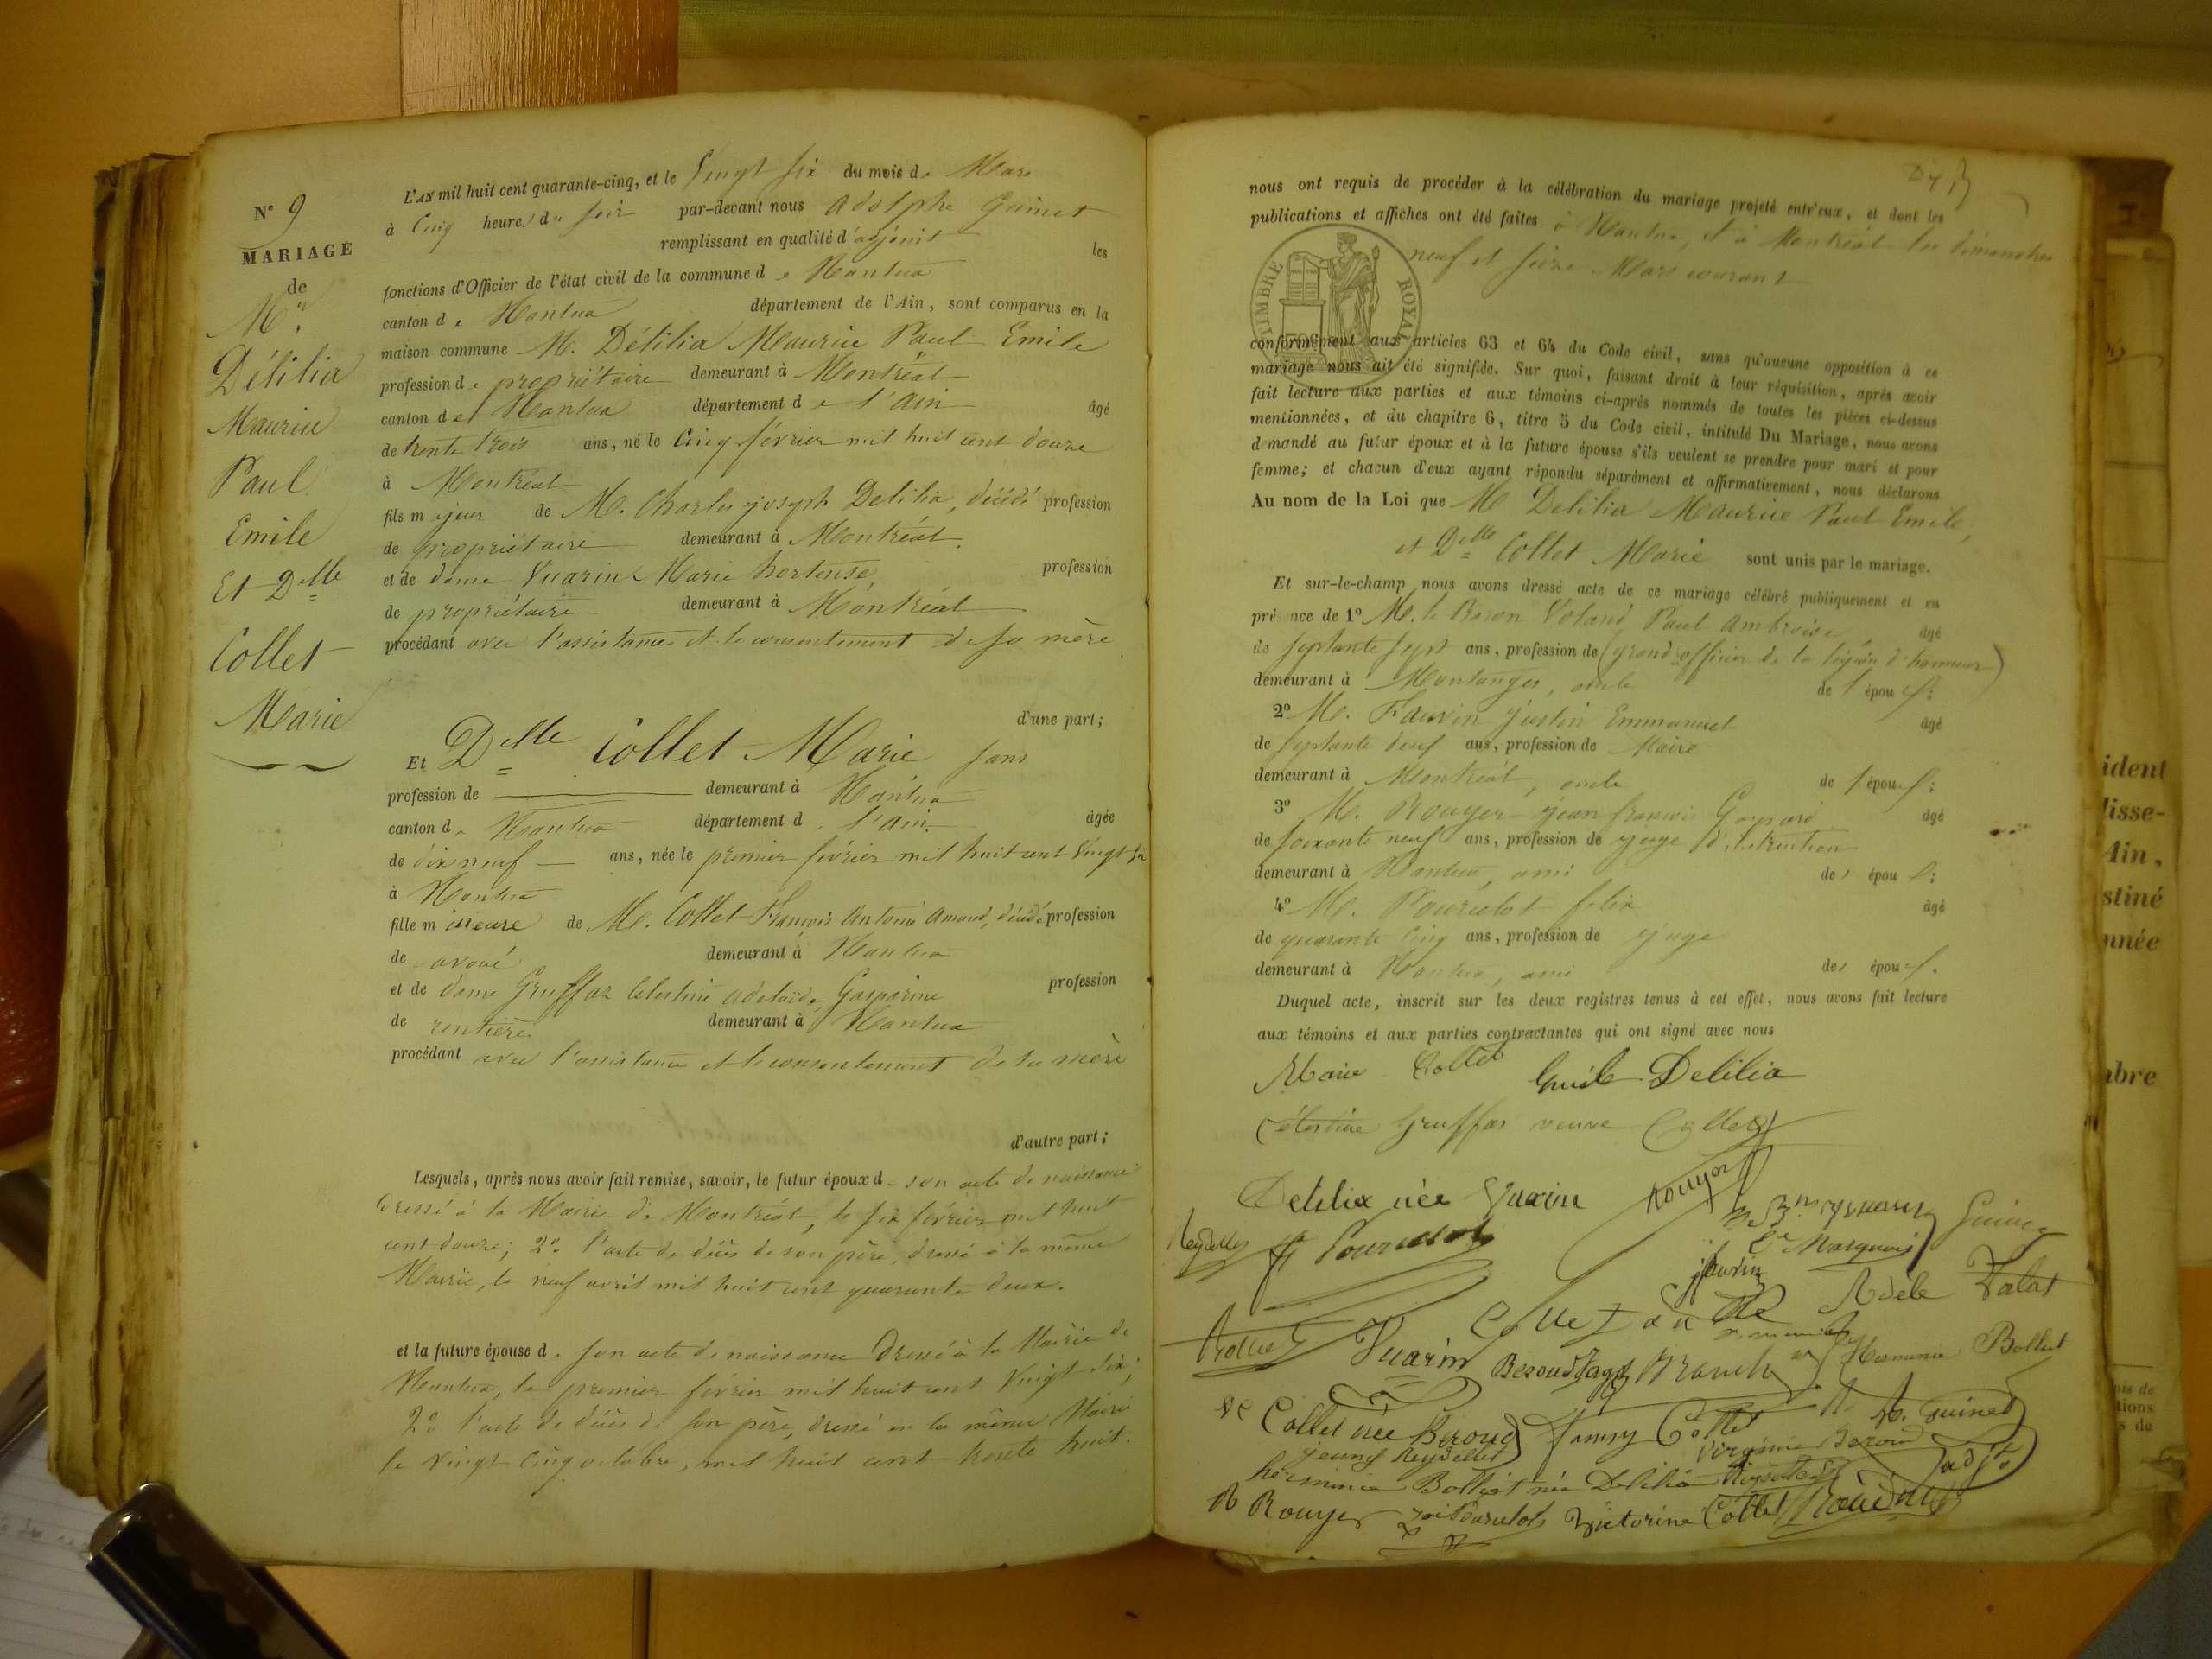 N° 9
MARIAGE
de
Mr.
Délilia
Maurice
Paul
Emile
Et Delle
Collet
Marie
L'AN mil huit cent quarante-cinq, et le Vingt six du mois de Mars
à Cinq heures du soir par-devant nous Adolphe Guinet
remplissant en qualité d'adjoint les
fonctions d'Officier de l'état civil de la commune de Nantua
canton de Nantua département de l'Ain, sont comparus en la
maison commune M. Délilia Maurice Paul Emile
profession de propriétaire demeurant à Montréal
canton de Nantua département de l'Ain âgé
de trente trois ans, né le Cinq février mil huit cent douze
à Montréal
fils majeur de M. Charles Joseph Delilia, décédé profession
de propriétaire demeurant à Montréal
et de dame Vuarin Marie hortense, profession
de propriétaire demeurant à Montréal
procédant avec l'assistance et le consentement de sa mère
d'une part;
Et Delle Collet Marie sans
profession de demeurant à Nantua
canton de Nantua département de l'Ain âgée
de dix neuf ans, née le premier février mil huit cent Vingt six
à Nantua
fille mineure de M. Collet François Antoine Amand, décédé profession
de avoué demeurant à Nantua
et de dame Gruffaz Celestine adelaïde Gasparine profession
de rentière demeurant à Nantua
procédant avec l'assistance et le consentement de sa mère
d'autre part;
Lesquels, après nous avoir fait remise, savoir, le futur époux d son acte de naissance
Dressé à la Mairie de Montréal, le six février mil huit
cent douze; 2° l'acte de décès de son père, dressé à la même
Mairie, le neuf avril mil huit cent quarante deux.
et la future épouse d. son acte de naissance Dressé à la Mairie de
Nantua, le premier février mil huit cent Vingt six;
2° l'acte de décès de son père, dressé en la même Mairie
le Vingt Cinq octobre, mil huit cent trente huit.
nous ont requis de procéder à la célébration du mariage projeté entr'eux, et dont les
publications et affiches ont été faites à Nantua, et à Montréal les dimanches
neuf et seize Mars courant
TIMBRE ROYAL
conformément aux articles 63 et 64 du Code civil, sans qu'aucune opposition à ce
mariage nous ait été signifiée. Sur quoi, faisant droit à leur réquisition, après avoir
fait lecture aux parties et aux témoins ci-après nommés de toutes les pièces ci-dessus
mentionnées, et du chapitre 6, titre 5 du Code civil, intitulé Du Mariage, nous avons
demandé au futur époux et à la future épouse s'ils veulent se prendre pour mari et pour
femme; et chacun d'eux ayant répondu séparément et affirmativement, nous déclarons
Au nom de la Loi que M Delilia Maurice Paul Emile,
et Delle Collet Marie sont unis par le mariage.
Et sur-le-champ nous avons dressé acte de ce mariage célébré publiquement et en
présence de 1° M. le Baron Paul Ambroise âgé
de septante sept ans, profession de (grand officier de la légion d'honneur)
demeurant à Montanges, oncle de l'époux;
2° M. Justin Emmanuel âgé
de septante deux ans, profession de Maire
demeurant à Montréal, oncle de l'époux;
3° M. Rouyer Jean françois Gaspard âgé
de soixante neuf ans, profession de juge d'instruction
demeurant à Nantua, ami des époux;
4° M. Pourcelot felix âgé
de quarante cinq ans, profession de juge
demeurant à Nantua, ami des époux.
Duquel acte, inscrit sur les deux registres tenus à cet effet, nous avons fait lecture
aux témoins et aux parties contractantes qui ont signé avec nous
Marie Collet Emile Delilia
Célestine Gruffaz veuve Collet
Delilia née Vuarin Rouyer
Adèle Talat
Vuarin
Herminie Bolliet
Ve Collet née Beroud Fanny Collet A. Guinet
jenny Reydellet Virginie Beroud adjt
herminie Bolliet née Delilia
R Rouyer Victorine Collet
ident
lisse-
Ain,
stiné
nnée
bre